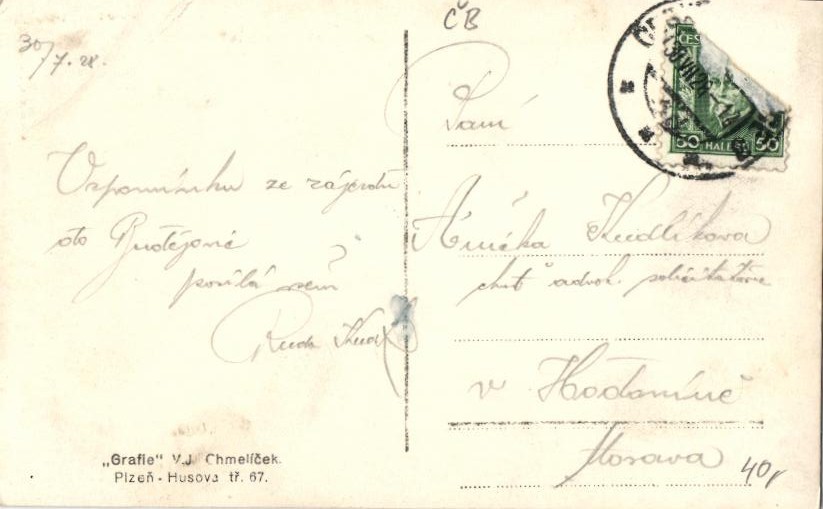 ČB
30/7.28.
Vzpomínku ze zájezdu
do Budějovic
posílá všem
Ruda
Paní
Anička Kudlíkova
choť advok. solicitatora
v Hodoníně
Morava
40,
ČES
50 HALÉ 50
30.VII.28
„Grafie" V.J. Chmelíček.
Plzeň - Husova tř. 67.